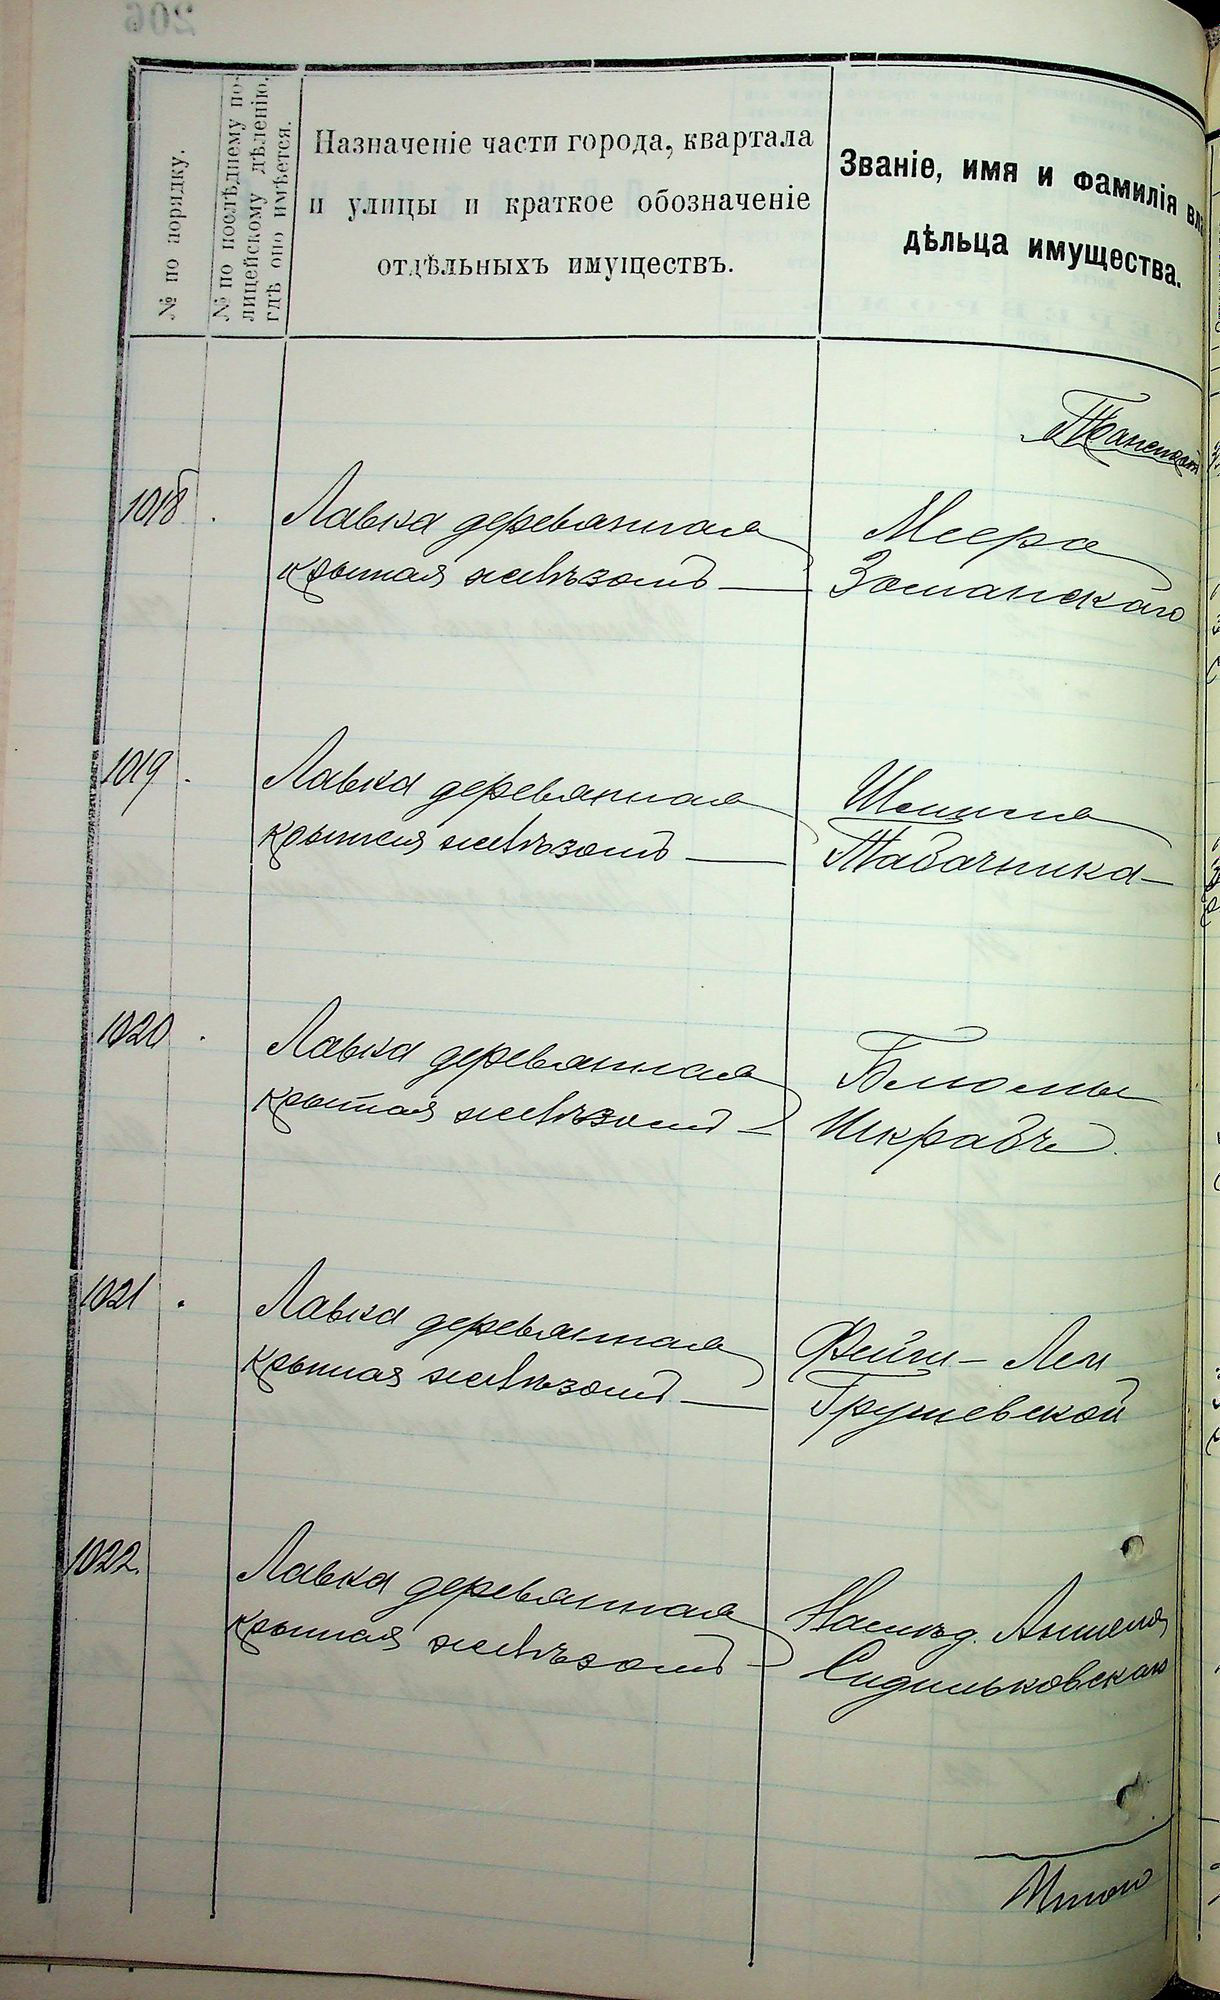 206
№ по порядку.
№ по послѣднему по-
лицейскому дѣленію,
гдѣ оно имѣется.
Назначеніе части города, квартала
и улицы и краткое обозначеніе
отдѣльныхъ имуществъ.
Званіе, имя и фамилія вла
дѣльца имущества.
1018
Лавка деревянная
крытая желѣзомъ —
Меера
Зосланскаго
1019
Лавка деревянная
крытая желѣзомъ —
Шлиома
Табачника —
1020
Лавка деревянная
крытая желѣзомъ —
Блюмы
Шкравъ
1021
Лавка деревянная
крытая желѣзомъ —
Фейги - Леи
Грушевской
1022
Лавка деревянная
крытая желѣзомъ —
Наслѣд. Аншеля
Сидильковскаго
Итого